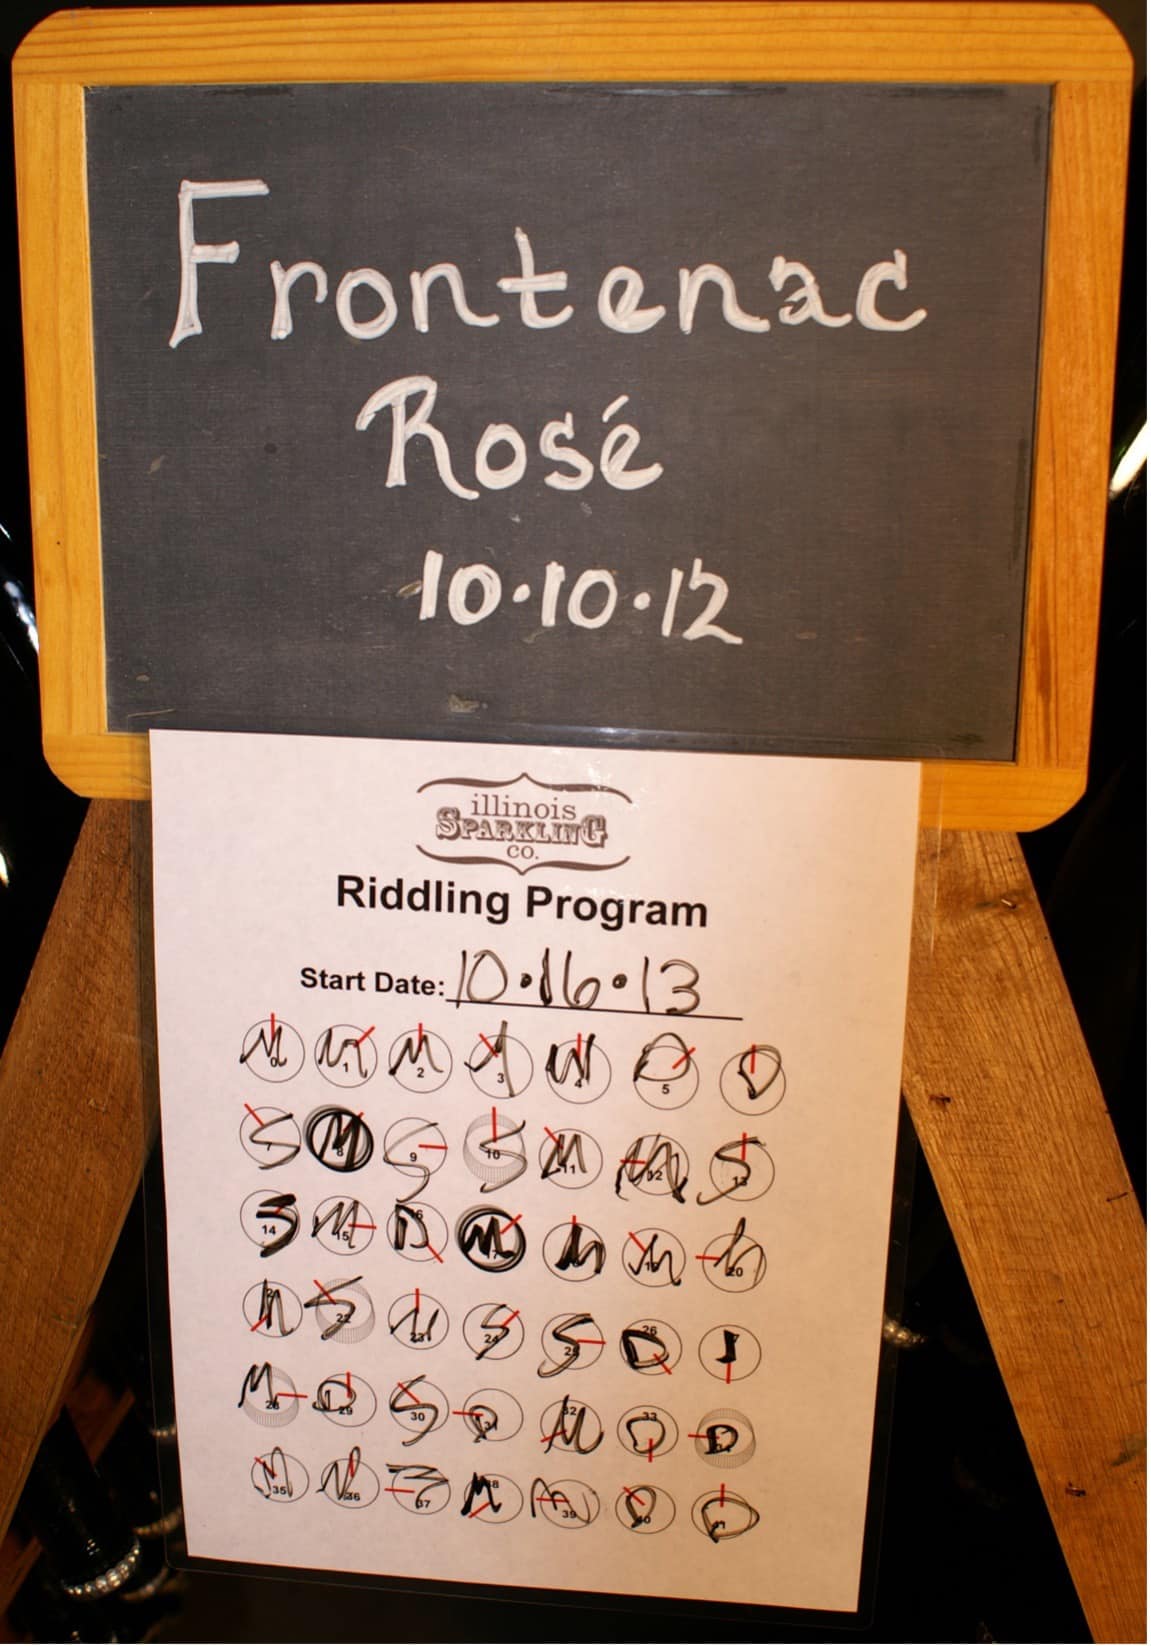 Frontenac
Rosé
10·10·12
illinois
SPARKLING
CO.
Riddling Program
Start Date: 10·16·13
M 0 M 1 M 2 M 3 M 4 D 5 D
S 7 M 8 S 9 S 10 M 11 M 12 S 13
S 14 M 15 D M 17 M M 19 M 20
M S 22 M 23 S 24 S 25 D 26
M 28 D 29 S 30 D 31 M 32 D 33 D
M 35 M 36 37 M 38 M 39 D 40 D 41